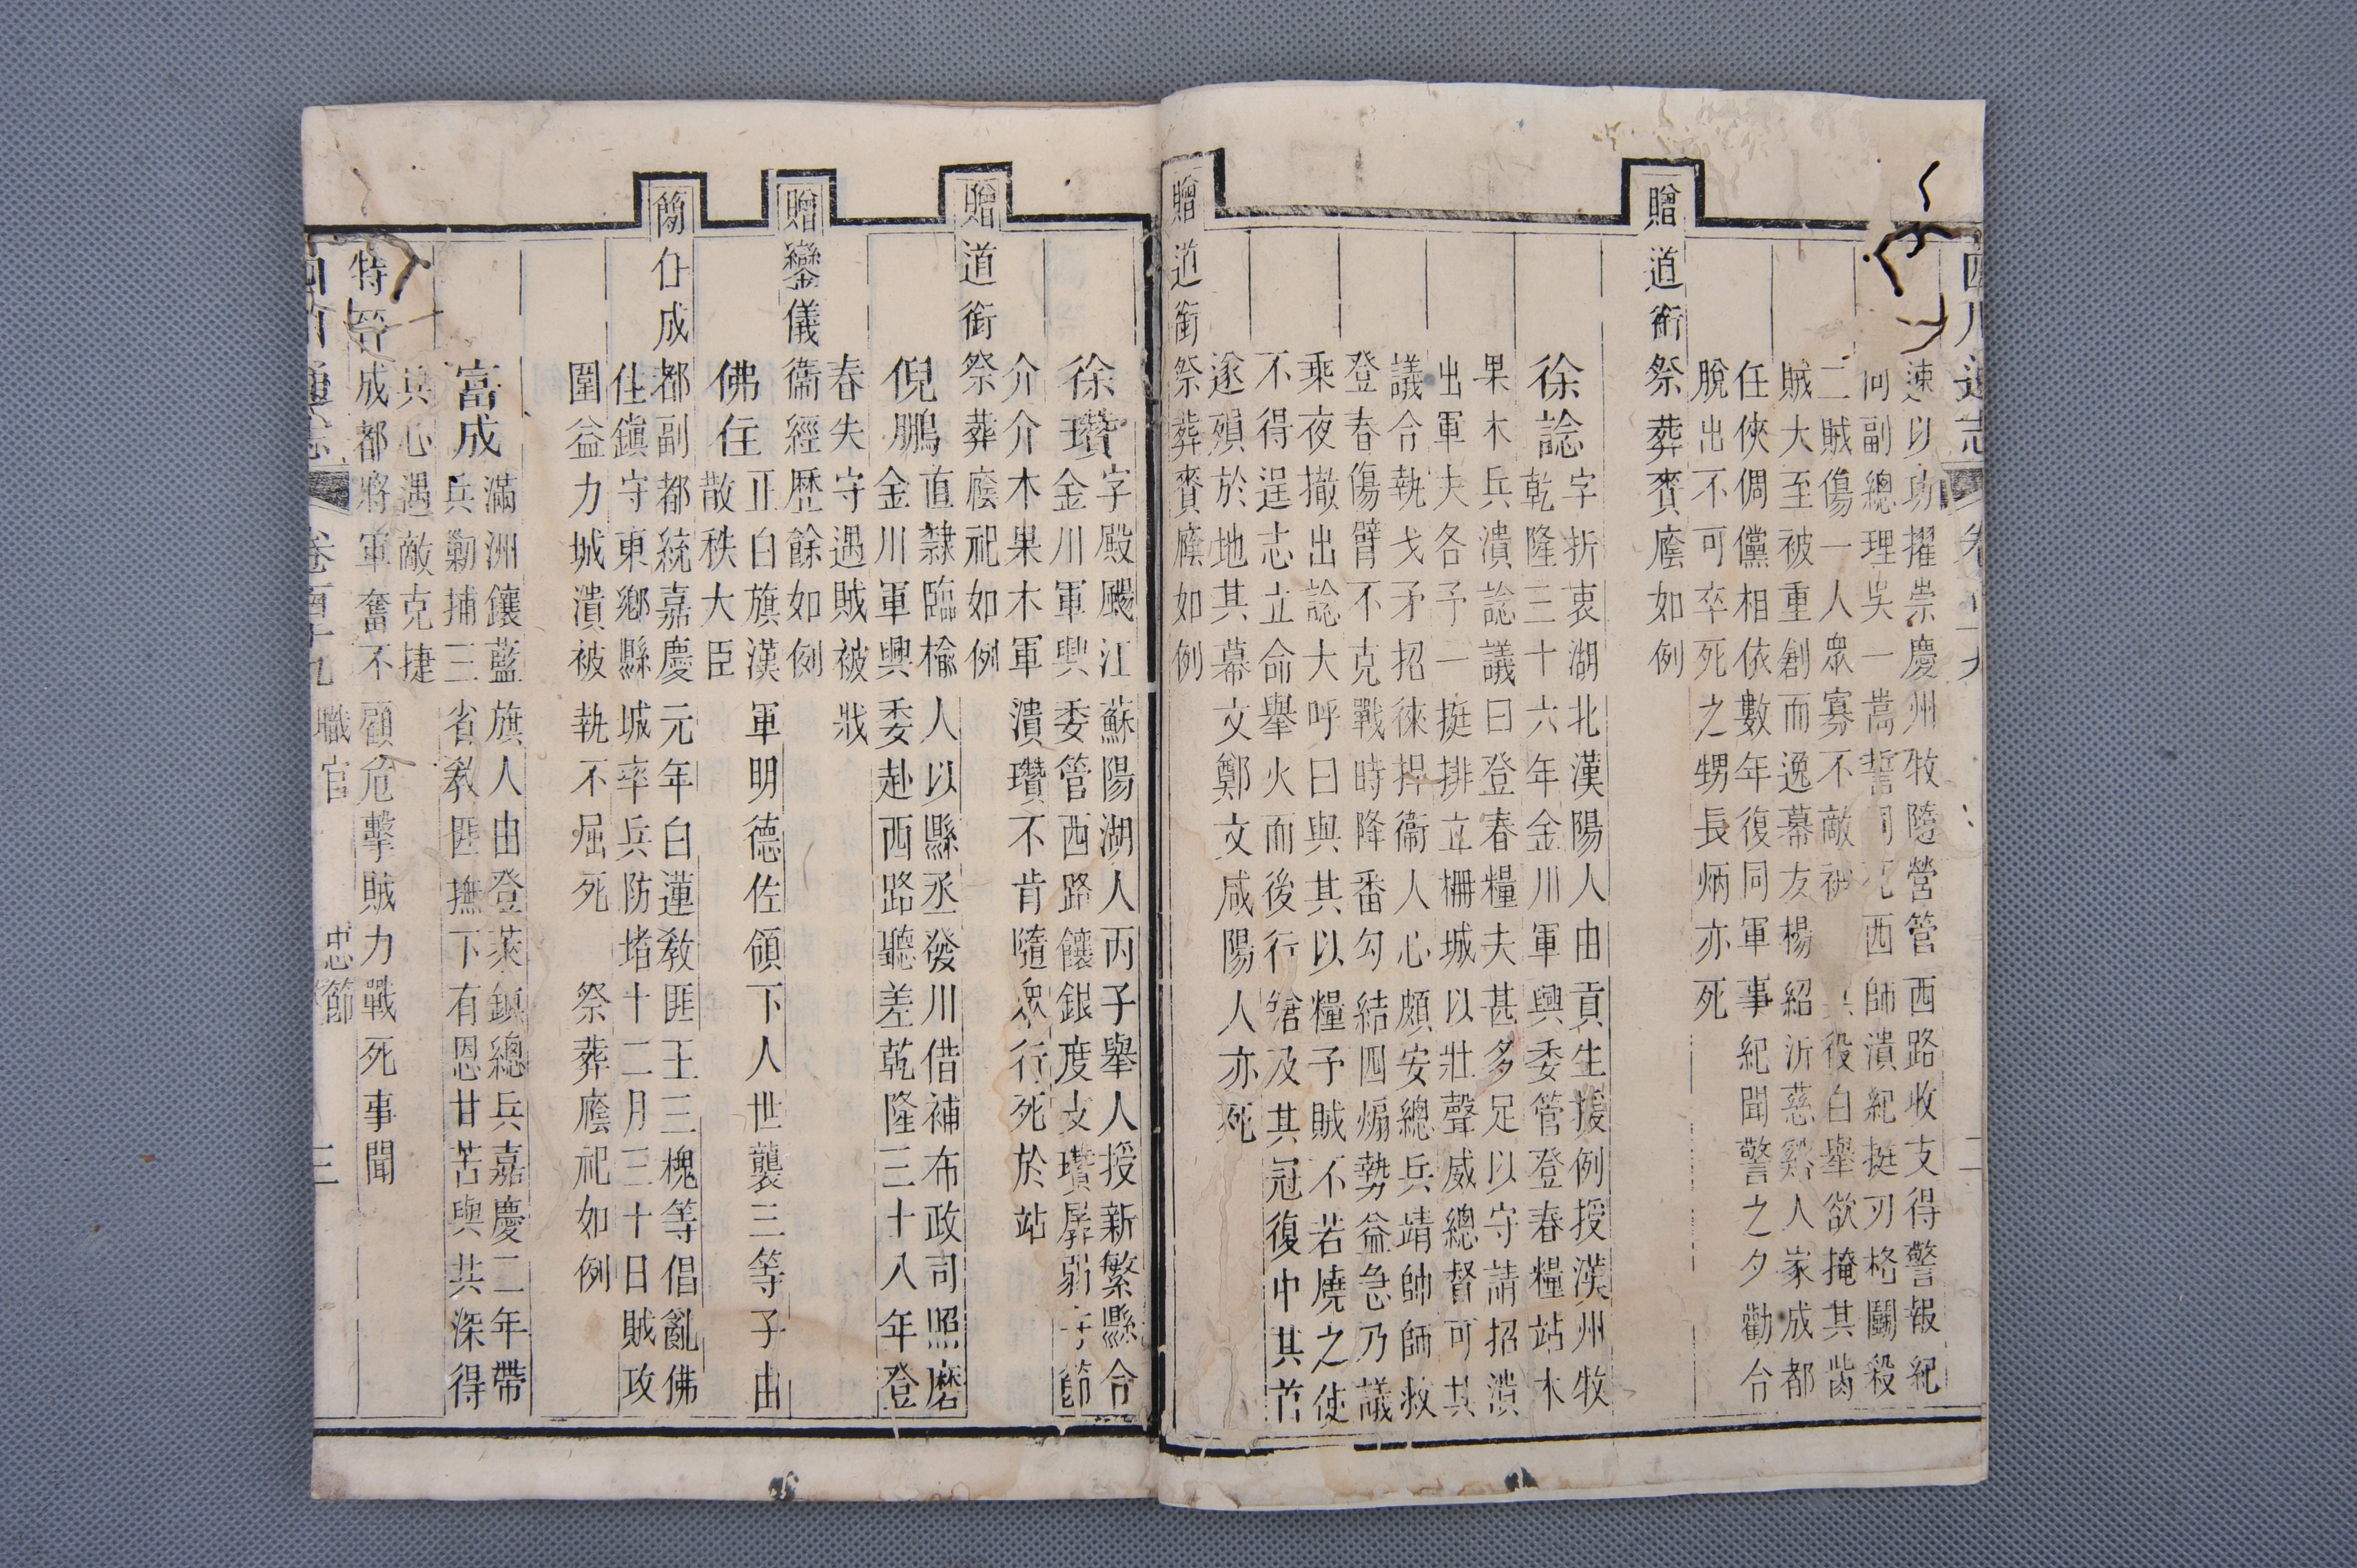 四川通志 卷
速以功擢崇慶州牧隨營管西路收支得警報紀
副總理吳一嵩誓同死西師潰紀挺刃格鬬殺
二賊傷一人眾寡不敵役自舉欲掩其
賊大至被重創而逸幕友楊紹沂慈谿人家成都
任俠倜儻相依數年復同軍事紀聞警之夕勸合
脫出不可卒死之甥長炳亦死
贈道銜祭葬賚廕如例
徐諗字折衷湖北漢陽人由貢生援例授漢州牧
乾隆三十六年金川軍興委管登春糧站木
果木兵潰諗議曰登春糧夫甚多足以守請招潰
出軍夫各予一挺排立柵城以壯聲威總督可其
議合執戈矛招徠捍衞人心頗安總兵靖帥師救
登春傷臂不克戰時降番勾結四煽勢益急乃議
乘夜撤出諗大呼曰與其以糧予賊不若燒之使
不得逞志立命舉火而後行鎗及其冠復中其首
遂殞於地其幕文鄭文咸陽人亦死
贈道銜祭葬賚廕如例
徐瓚字殿颺江蘇陽湖人丙子舉人授新繁縣合
金川軍興委管西路饟銀度支瓚孱弱守節
介介木果木軍潰瓚不肯隨衆行死於站
贈道銜祭葬廕祀如例
倪鵬直隸臨榆人以縣丞發川借補布政司照磨
金川軍興委赴西路聽差乾隆三十八年登
春失守遇賊被戕
贈鑾儀衞經歷餘如例
佛住正白旗漢軍明德佐領下人世襲三等子由
散秩大臣
簡任成都副都統嘉慶元年白蓮教匪王三槐等倡亂佛
住鎮守東鄉縣城率兵防堵十二月三十日賊攻
圍益力城潰被執不屈死 祭葬廕祀如例
富成滿洲鑲藍旗人由登萊鎮總兵嘉慶二年帶
兵勦捕三省教匪撫下有恩甘苦與共深得
兵心遇敵克捷
特授成都將軍奮不顧危擊賊力戰死事聞
四川通志 卷百十九 職官 忠節 三